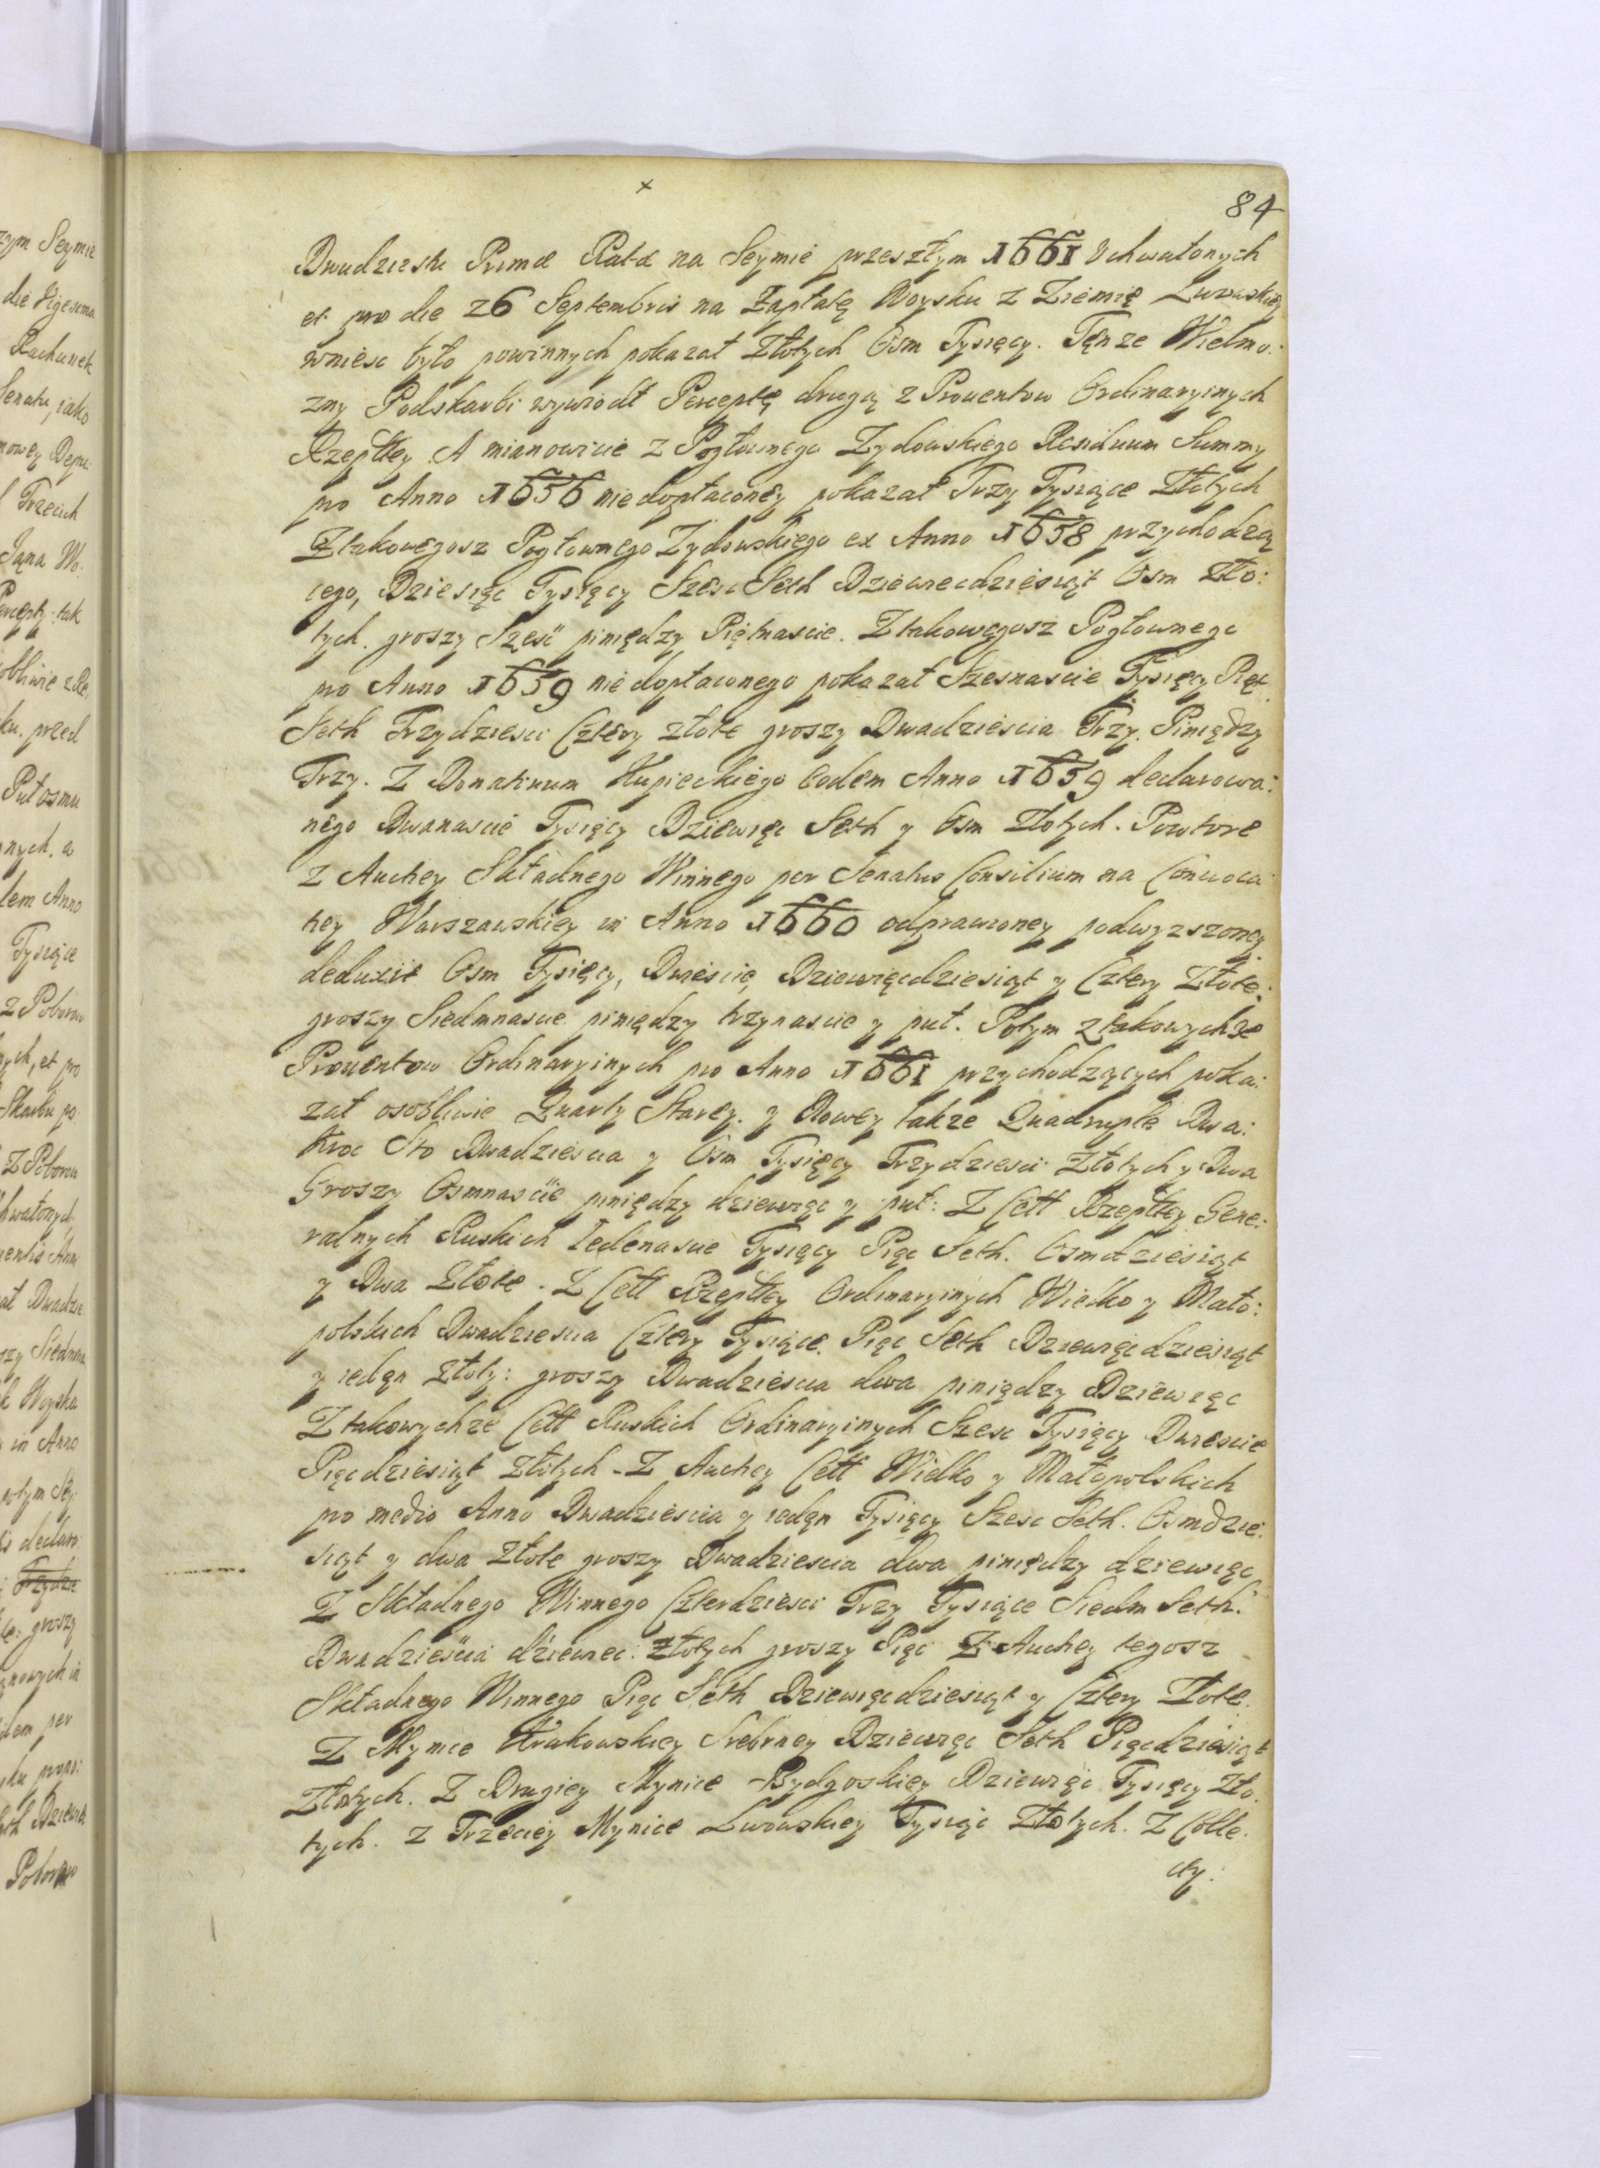 84
Dwudziestu Primæ Ratæ na Seymie przeszłym 1661 Uchwalonych
et pro die 26 Septembris na Zapłatę Woysku z Ziemię
wnieść było powinnych pokazał Złotych Osm Tysięcy. Tęnze Wielmo:
zny Podskarbi wywiodł Perceptę drugą z Prouentow Ordinaryinych
Rzeptley A mianowicie z Pogłownego Zydowskiego Residuum Summy
pro Anno 1656 niedopłaconey pokazał Trzy Tysiące Złotych
Ztakowegosz Pogłownego Zydowskiego ex Anno 1658 przychodzą
cego, Dziesięc Tysięcy Szesc Seth Dziewiecdziesiąt Osm Zło:
tych. groszy Szesc piniędzy Piętnascie. Ztakowegosz Pogłownego
pro Anno 1659 niedopłaconego pokazał Szesnascie Tysięcy Pięc
Seth Trzydziesci Cztery złote groszy Dwadziescia Trzy. Piniędzy
Trzy. Z Donatiuum Kupieckiego Eodem Anno 1659 declarowa:
nego Dwanascie Tysięcy Dziewięc Seth y Osm Złotych. Powtore
Z Auctiey Składnego Winnego per Senatus Consilium na Conuoca
tiey Warszawskiey in Anno 1660 odprawioney podwyzszoney
deduxit Osm Tysięcy, Dwieście Dziewięcdziesiąt y Cztery Złote:
groszy Siedmnascie piniędzy trzynascie y puł. Potym z takowychze
Prouentow Ordinaryinych pro Anno 1661 przychodzących poka:
zał osobliwie Quarty Starey y Nowey także Quadruple Dwa:
kroc Sto Dwadziescia y Osm Tysięcy Trzydziesci Złotych y Dwa
Groszy Osmnascie piniędzy dziewięc y puł: Z Cełł Rzeptley Gene:
ralnych Ruskich Iedenascie Tysięcy Pięc Seth. Osmdziesiąt
y Dwa Złote. Z Cełł Rzeptley Ordinaryinych Wielko y Mało:
polskich Dwadziescia Cztery Tysiące Pięc Seth Dziewięcdziesiąt
y iedęn złoty: groszy Dwadziescia dwa piniędzy Dziewięc
Z takowychze Cełł Ruskich Ordinaryinych Szesc Tysięcy Dwiescie
Pięcdziesiąt Złotych - Z Auctiey Cełł Wielko y Małopolskich
pro medio Anno Dwadziescia y iedęn Tysięcy Szesc Seth. Osmdzie:
siąt y dwa Złote groszy Dwadziescia dwa piniędzy dziewięc
Z Składnego Winnego Czterdziesci Trzy Tysiące Siedm Seth.
Dwadziescia dziewiec: złotych groszy Pięc Z Auctiey tegosz
Składnego Winnego Pięc Seth Dziewięcdziesiąt y Cztery Złote.
Z Mynice Krakowskiey Srebrney Dziewięc Seth Pięcdziesiąt
Złotych. Z Drugiey Mynice Bydgoskiey Dziewięc Tysięcy Zło.
tych. Z Trzeciey Mynice Lwowskiey Tysiąc Złotych. Z Colle.
cty: